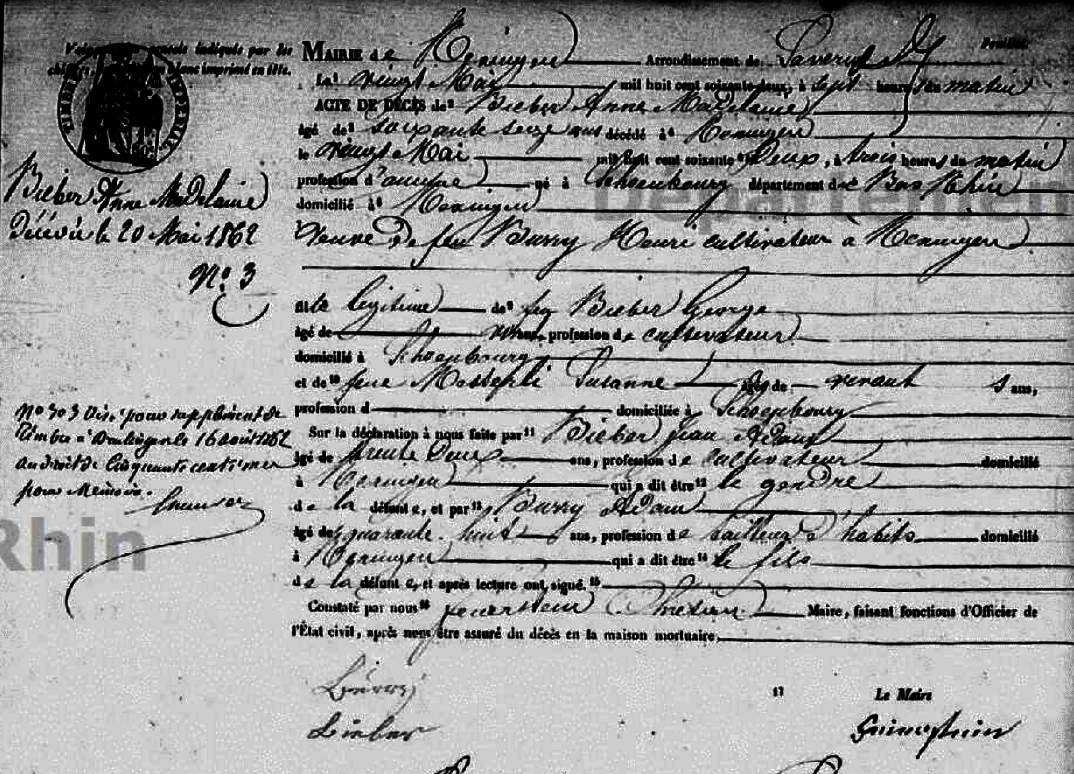 MAIRIE de Arrondissement de Saverne
Le vingt Mai mil huit cent soixante-deux, à sept heures du matin
ACTE DE DÉCÈS de Bieber Anne Madelaine
âgé de soixante seize ans décédé à
le vingt Mai mil huit cent soixante Deux, à trois heures du matin
profession d'aucune né à Schoenbourg département de Bas Rhin
domicilié à
Veuve de feu Burry Henri cultivateur à
fille légitime de feu Bieber George
âgé de profession de cultivateur
domicilié à Schoenbourg
et de feue Susanne âgée de vivant ans,
profession d domiciliée à Schoenbourg
Sur la déclaration à nous faite par Bieber Jean Adam
âgé de trente Deux ans, profession de cultivateur domicilié
à qui a dit être le gendre
de la défunte, et par Burry Adam
âgé de quarante huit ans, profession de tailleur d'habits domicilié
à qui a dit être le fils
de la défunte, et après lecture ont signé.
Constaté par nous Maire, faisant fonctions d'Officier de
l'État civil, après nous être assuré du décès en la maison mortuaire.
Le Maire
Bieber
Bieber Anne Madelaine
Décédée le 20 Mai 1862
No. 3
No 303 Visé pour supplément de
Timbre à le 16 août 1862
au droit de Cinquante centimes
pour Mémoire.
Département
Rhin